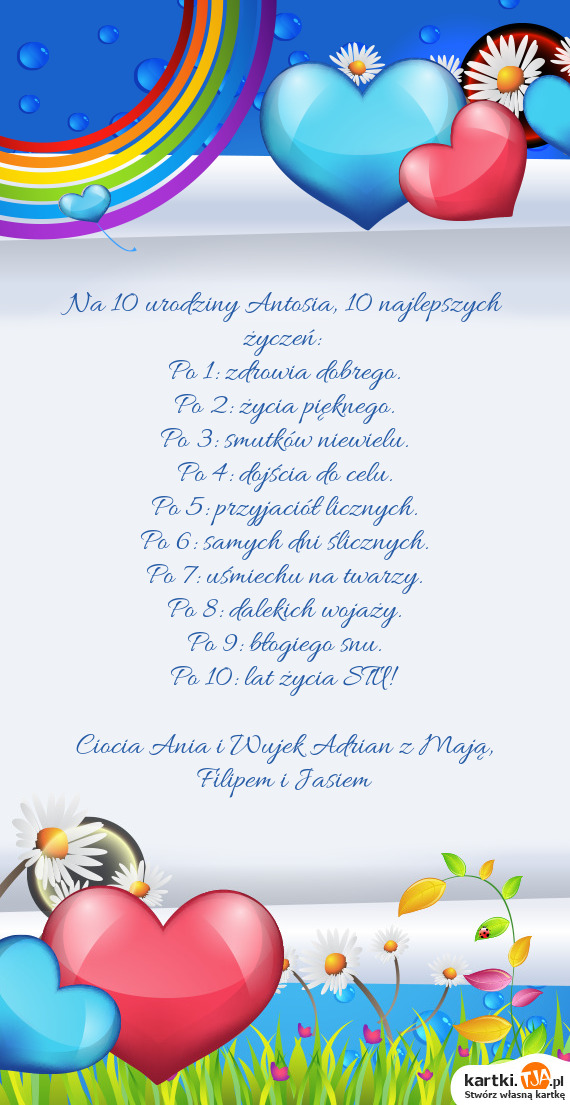 Na 10 urodziny Antosia, 10 najlepszych
życzeń:
Po 1: zdrowia dobrego.
Po 2: życia pięknego.
Po 3: smutków niewielu.
Po 4: dojścia do celu.
Po 5: przyjaciół licznych.
Po 6: samych dni ślicznych.
Po 7: uśmiechu na twarzy.
Po 8: dalekich wojaży.
Po 9: błogiego snu.
Po 10: lat życia STU!
Ciocia Ania i Wujek Adrian z Mają,
Filipem i Jasiem
kartki.TJA.pl
Stwórz własną kartkę